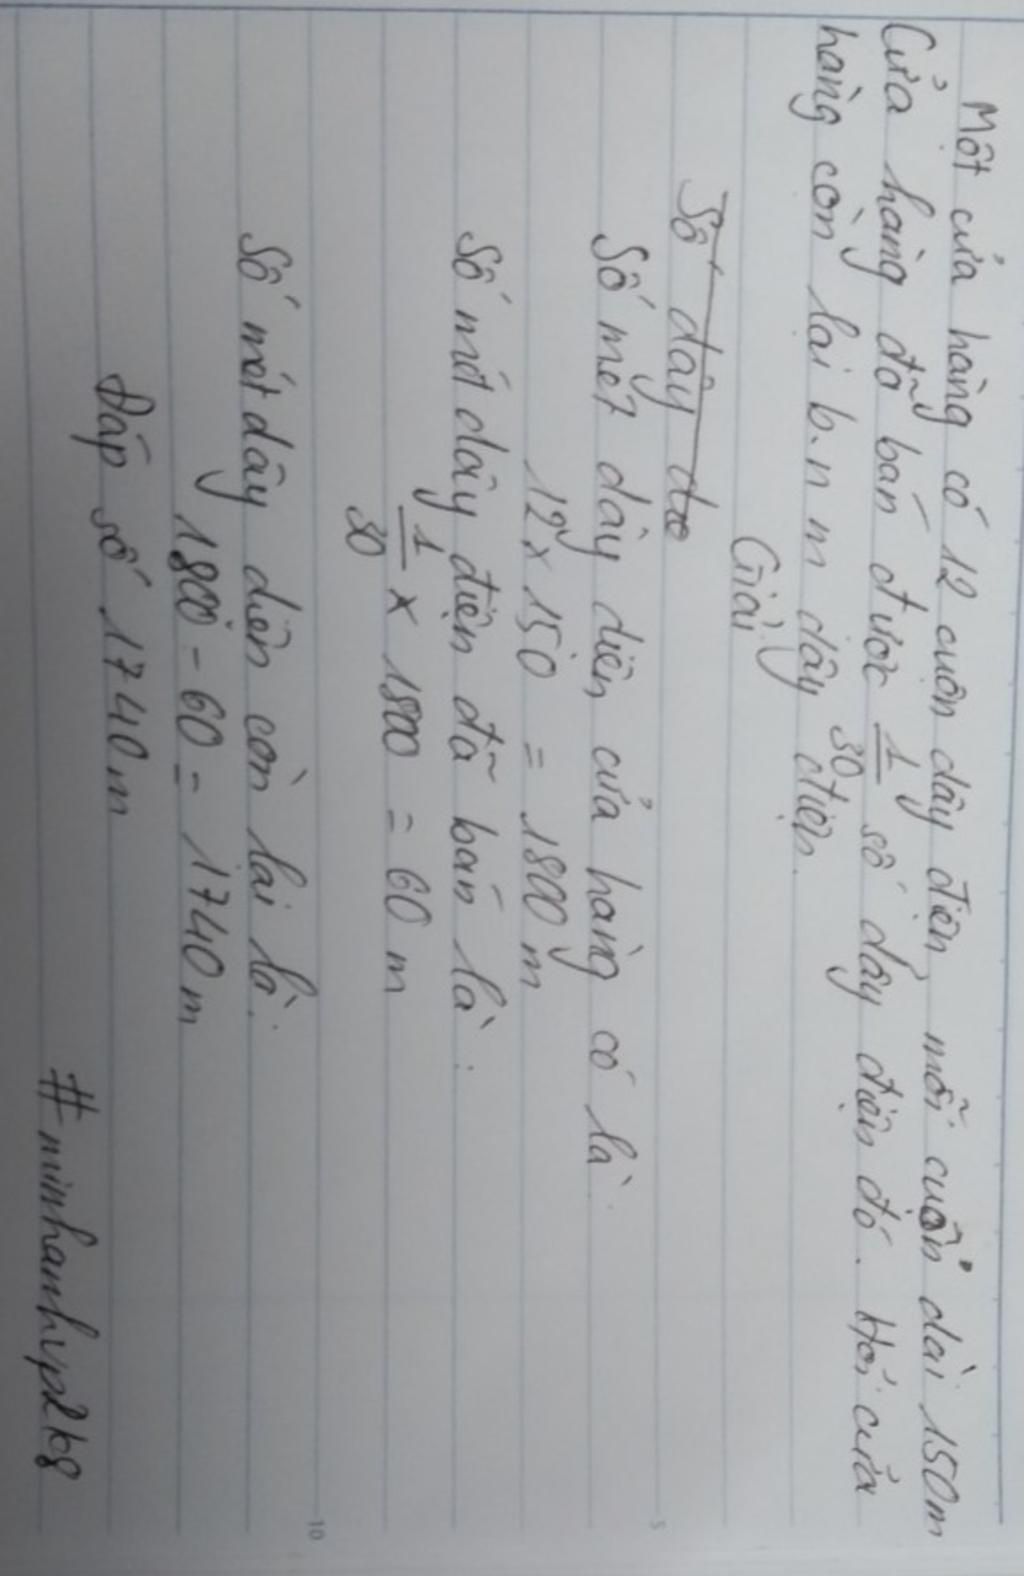 Một cửa hàng có 12 cuộn dây điện, mỗi cuộn dài 150m
Cửa hàng đã bán được 1/30 số dây điện đó. Hỏi cửa
hàng còn lại b.n m dây điện.
Giải
Số dây đươ
Số mét dây điện cửa hàng có là:
12 x 150 = 1800 m
Số mét dây điện đã bán là:
1/30 x 1800 = 60 m
Số mét dây điện còn lại là:
1800 - 60 = 1740 m
Đáp số 1740 m
#minhanhvp2k8
5
10